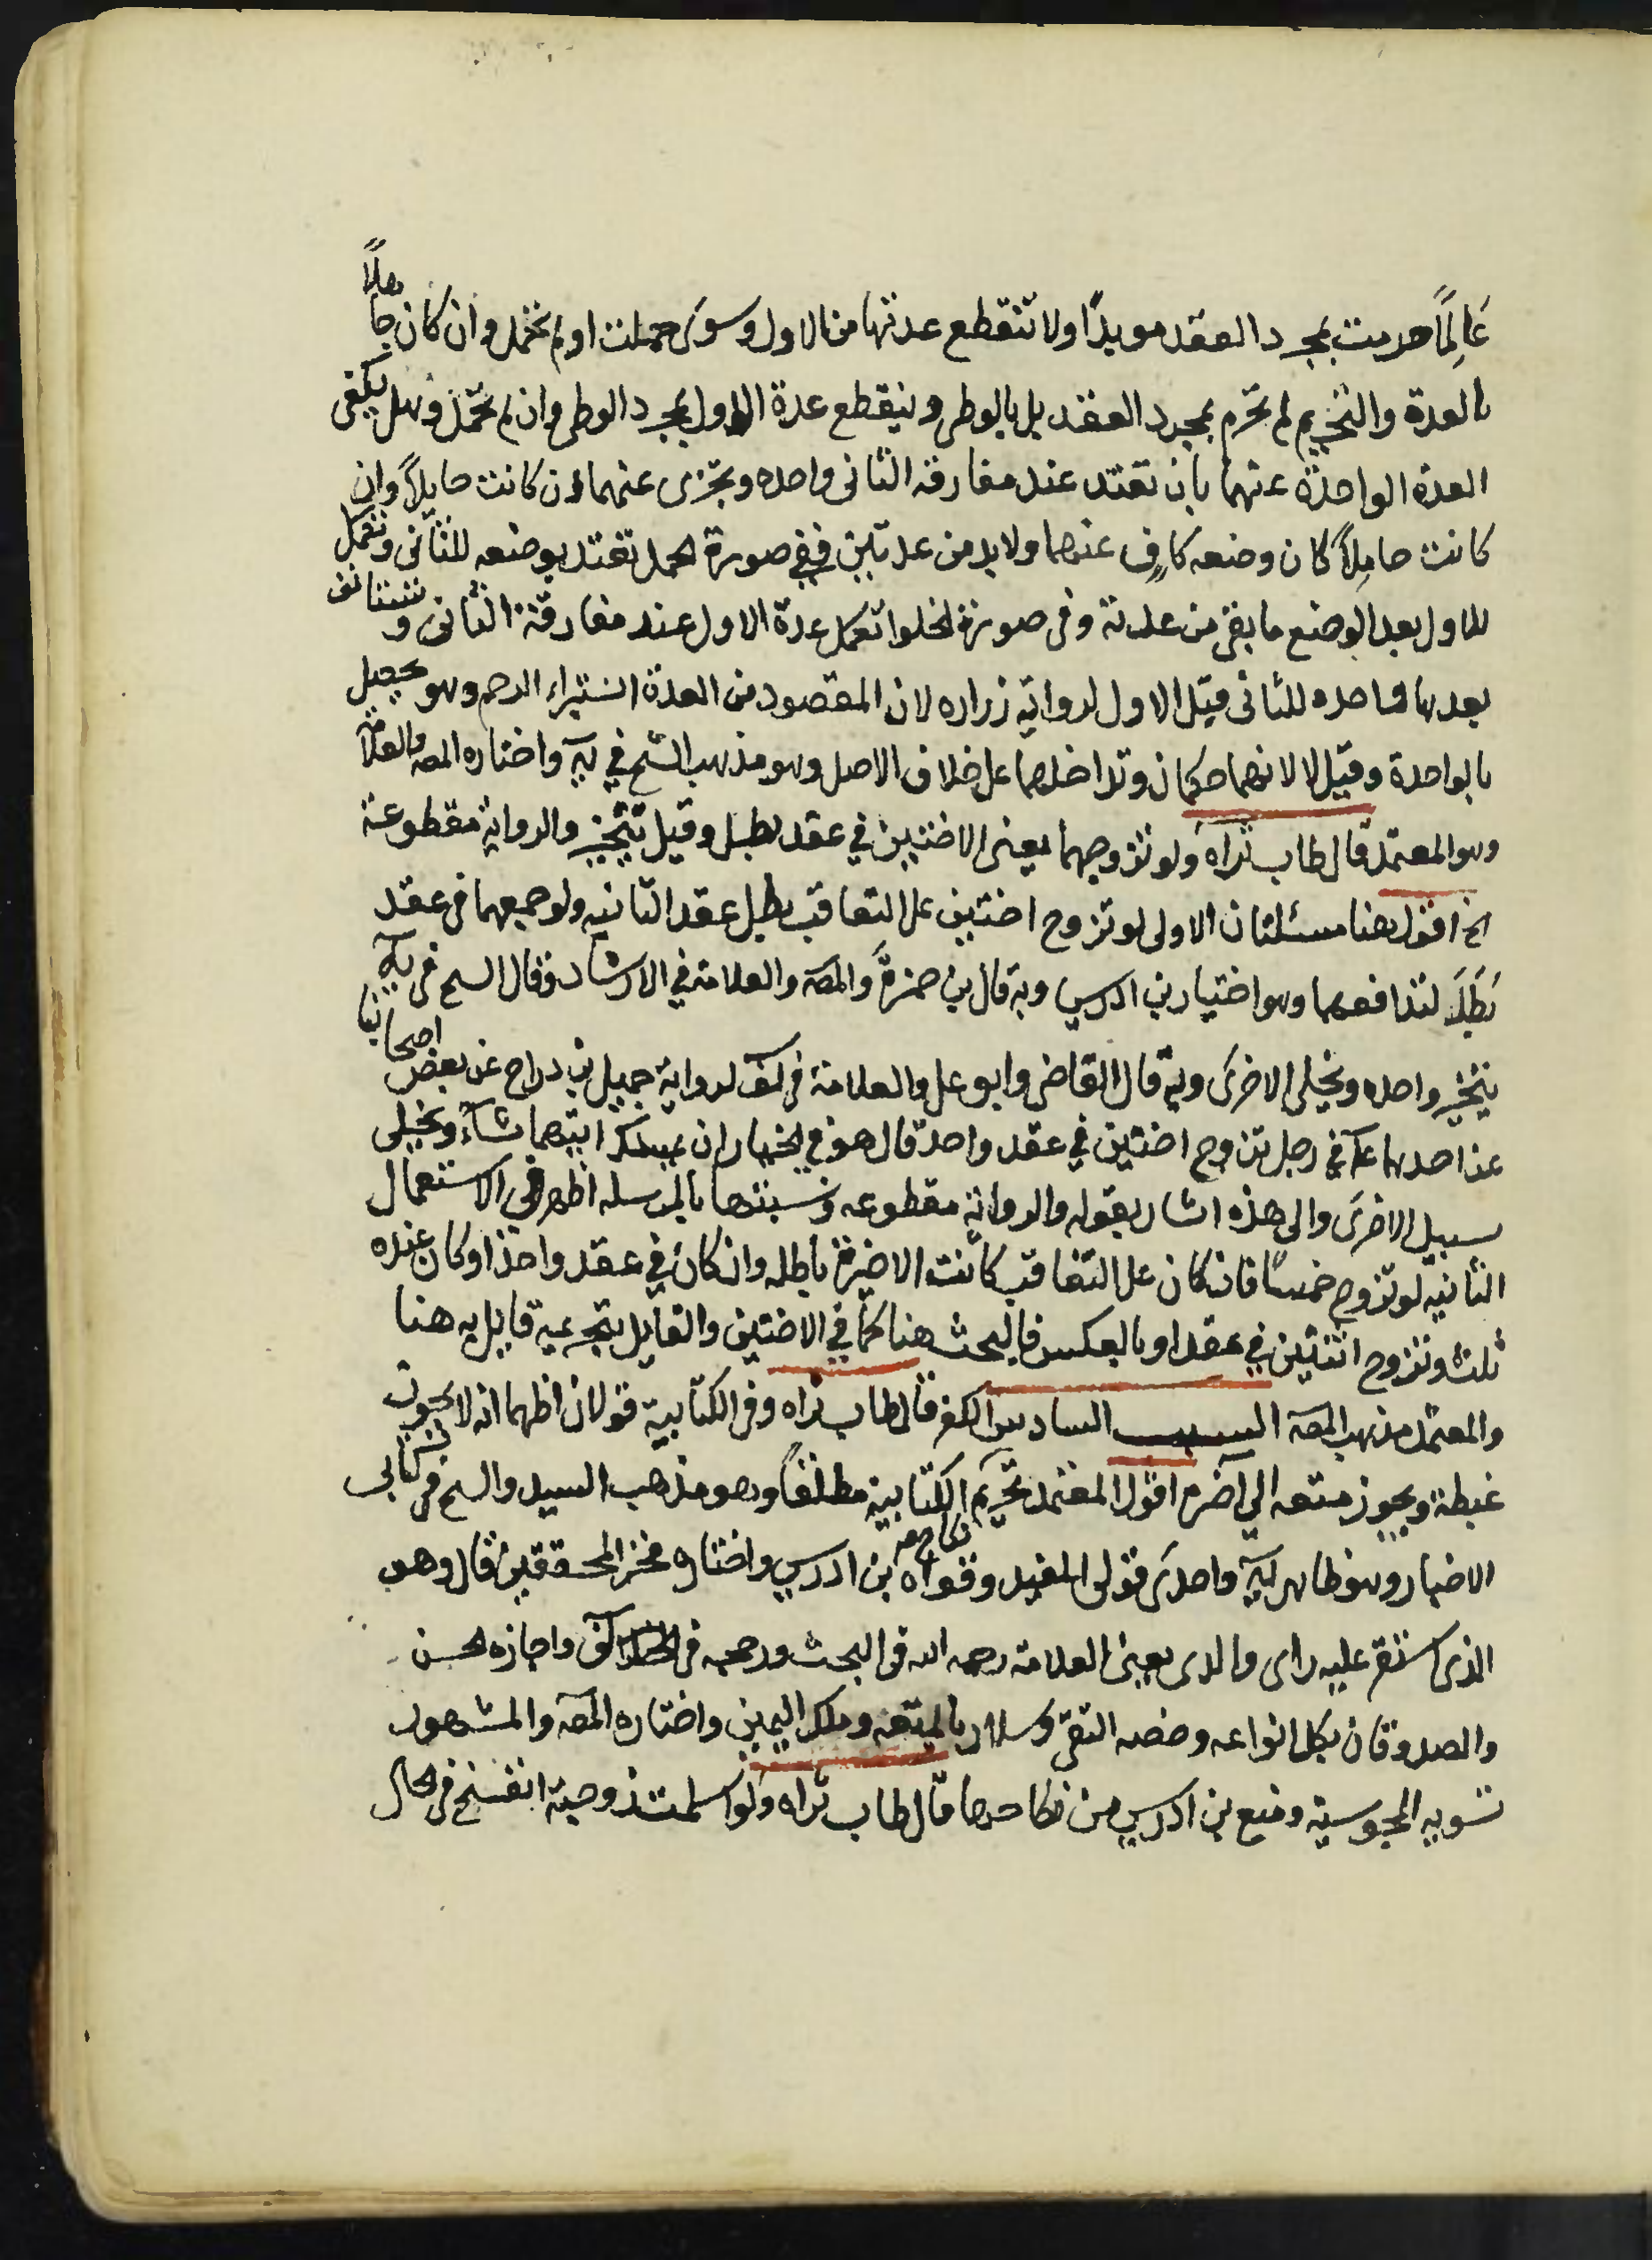 عَالِمًا حرمت بمجرد العقد موبدًا ولا تنقطع عدتها من الاول وسوى حملت او لم تحمل وان كان جاهلاً
بالعدة والتحريم لم تحرم بمجرد العقد بل بالوطى وينقطع عدة الاول بمجرد الوطى وان لم تحمل وهل يكفى
العدة الواحدة عنهما بان تعتد عند مفارقة الثانى واحده وتجزى عنهما ان كانت حايلاً وان
كانت حاملاً كان وضعه كافٍ عنهما ولا بد من عدتين ففى صورة الحمل تعتد بوضعه للثانى وتكمل
للاول بعد الوضع ما بقى من عدته وفى صورة الخلو تكمل عدة الاول عند مفارقة الثانى وتستانف
بعدها واحده للثانى قيل الاول لرواية زراره لان المقصود من العدة استبراء الرحم وهو يحصل
بالواحدة وقيل لا لانهما حكمان وتداخلهما على خلاف الاصل وهو مذهب الشيخ في يه واختاره المصه والعلامة
وهو المعتمد قال طاب ثراه ولو تزوجهما يعنى الاختين في عقد بطل وقيل يتخير والرواية مقطوعة
الخ اقول هنا مسئلتان الاولى لو تزوج اختين على التعاقب بطل عقد الثانيه ولو جمعهما فى عقد
بَطَلَا لتدافعهما وهو اختيار بن ادريس وبه قال بن حمزة والمصه والعلامة في الارشاد وقال الشيخ فى يه
يتخير واحده ويخلى الاخرى وبه قال القاضى وابو على والعلامة فى لف لرواية جميل بن دراج عن بعض اصحابنا
عن احدهما ع في رجل تزوج اختين في عقد واحد قال هو فى الخيار ان يمسك ايتهما شاء ويخلى
سبيل الاخرى والى هذه اشار بقوله والرواية مقطوعه ونسبتها بالمرسله اظهر فى الاستعمال
الثانيه لو تزوج خمسًا فان كان على التعاقب كانت الاخيرة باطله وان كان في عقد واحد او كان عنده
ثلث وتزوج اثنتين في عقد او بالعكس فالبحث هنا كما في الاختين والقايل يتجه عيه قايل به هنا
والمعتمد مذهب المصه السبب السادس الكفر قال طاب ثراه وفى الكتابية قولان اظهرهما انه لا يجوز
غبطة ويجوز متعه الى آخره اقول المعتمد تحريم نكاح الكتابية مطلقاً وهو مذهب السيد والشيخ فى كتابى
الاخبار وهو ظاهر يه واحدى قولى المفيد وقواه بن ادريس واختاره فخر المحققين قال وهو
الذى استقر عليه راى والدى يعنى العلامة رحمه الله فى البحث ورجحه فى لف واجازه الحسن
والصدوقان بكل انواعه وخصه التقى وسلار بالمتعه وملك اليمين واختاره المصه والمشهور
تسويه المجوسية ومنع بن ادريس من نكاحها قال طاب ثراه ولو اسلمت زوجته انفسخ فى الحال